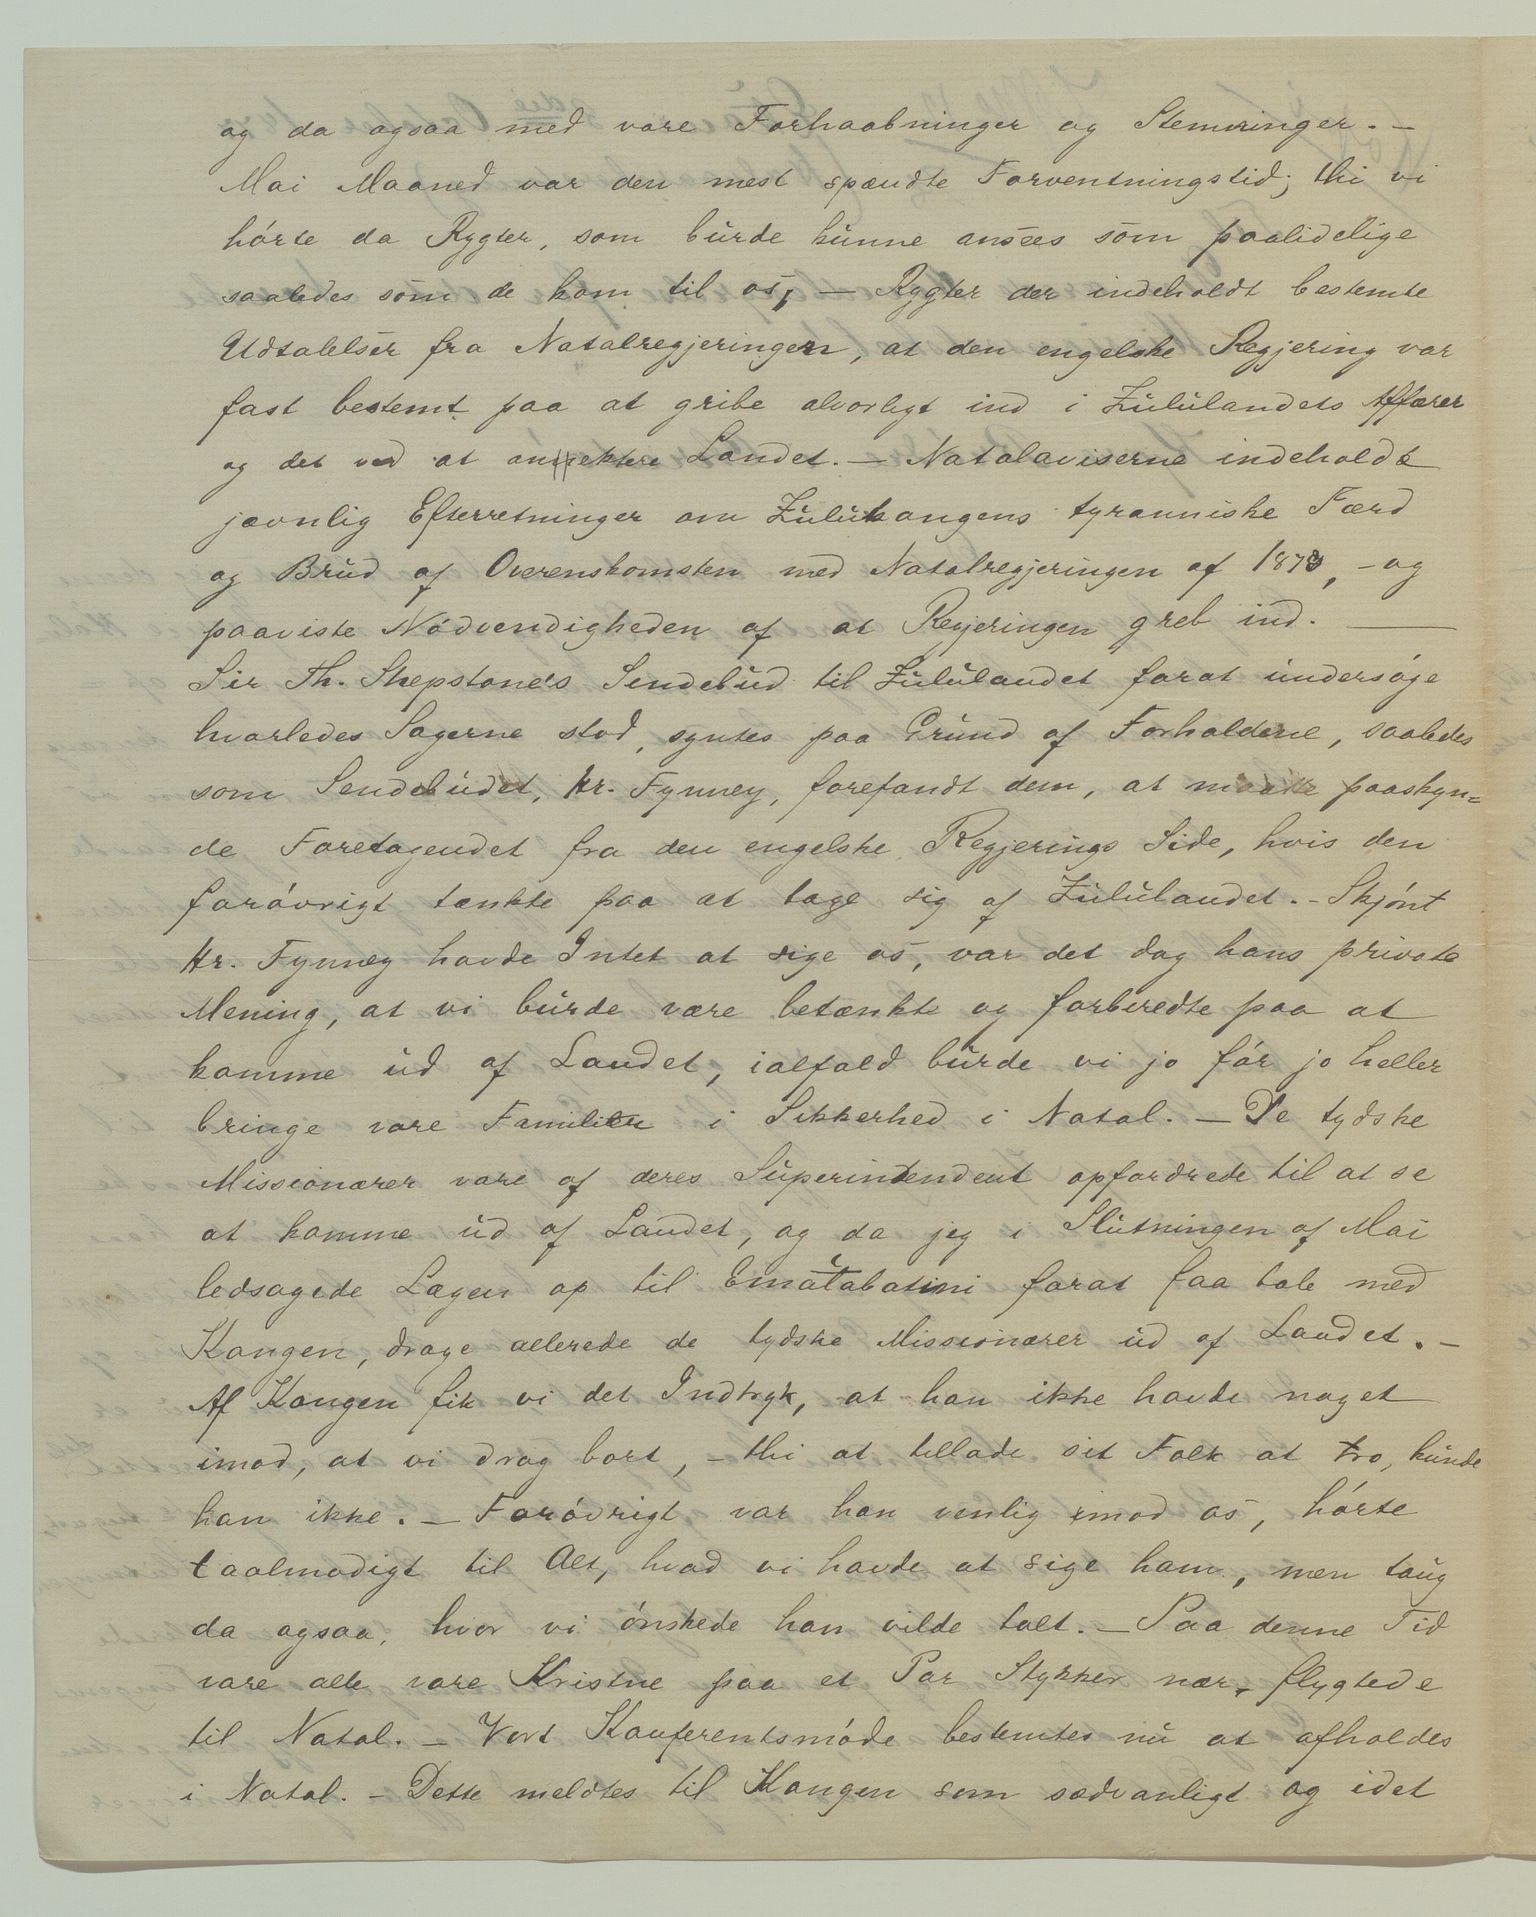 og da ogsaa med vore Forhaabninger og Stemninger. —
Mai Maaned var den mest spændte Forventningstid; thi vi
hórte da Rygter, som burde kunne ansees som paalidelige
saaledes som de kom til os, — Rygter der indeholdt bestemte
Udtalelser fra Natalregjeringen, at den engelske Regjering var
fast bestemt paa at gribe alvorligt ind i Zululandets Affærer
og det ved at annektere Landet. — Natalaviserne indeholdt
jævnlig Efterretninger om Zulukongens tyranniske Færd
og Brud af Overenskomsten med Natalregjeringen af 1873, - og
paaviste Nódvendigheden af at Regjeringen greb ind. —
Sir Th. Shepstone's Sendebud til Zululandet forat undersóge
hvorledes Sagerne stod, syntes paa Grund af Forholdene, saaledes
som Sendebudet, Hr. Fynney, forefandt dem, at maatte paaskyn=
de Foretagendet fra den engelske Regjerings Side, hvis den
foróvrigt tænkte paa at tage sig af Zululandet. - Skjónt
Hr. Fynney havde Intet at sige os, var det dog hans private
Mening, at vi burde være betænkte og forberedte paa at
komme ud af Landet, ialfald burde vi jo fór jo heller
bringe vore Familier i Sikkerhed i Natal. — De tydske
Missionærer vare af deres Superintendent opfordrede til at se
at komme ud af Landet, og da jeg i Slutningen af Mai
ledsagede Lægen op til Ematabatini forat faa tale med
Kongen, droge allerede de tydske Missionærer ud af Landet. —
Af Kongen fik vi det Indtryk, at han ikke havde noget
imod, at vi drog bort, - thi at tillade sit Folk at tro, kunde
han ikke. — Foróvrigt var han venlig imod os, hórte
taalmodigt til Alt, hvad vi havde at sige ham, men taug
da ogsaa, hvor vi ónskede han vilde talt. — Paa denne Tid
vare alle vore Kristne paa et Par Stykker nær, flygtede
til Natal. — Vort Konferentsmóde bestemtes nu at afholdes
i Natal. - Dette meldtes til Kongen som sædvanligt og idet